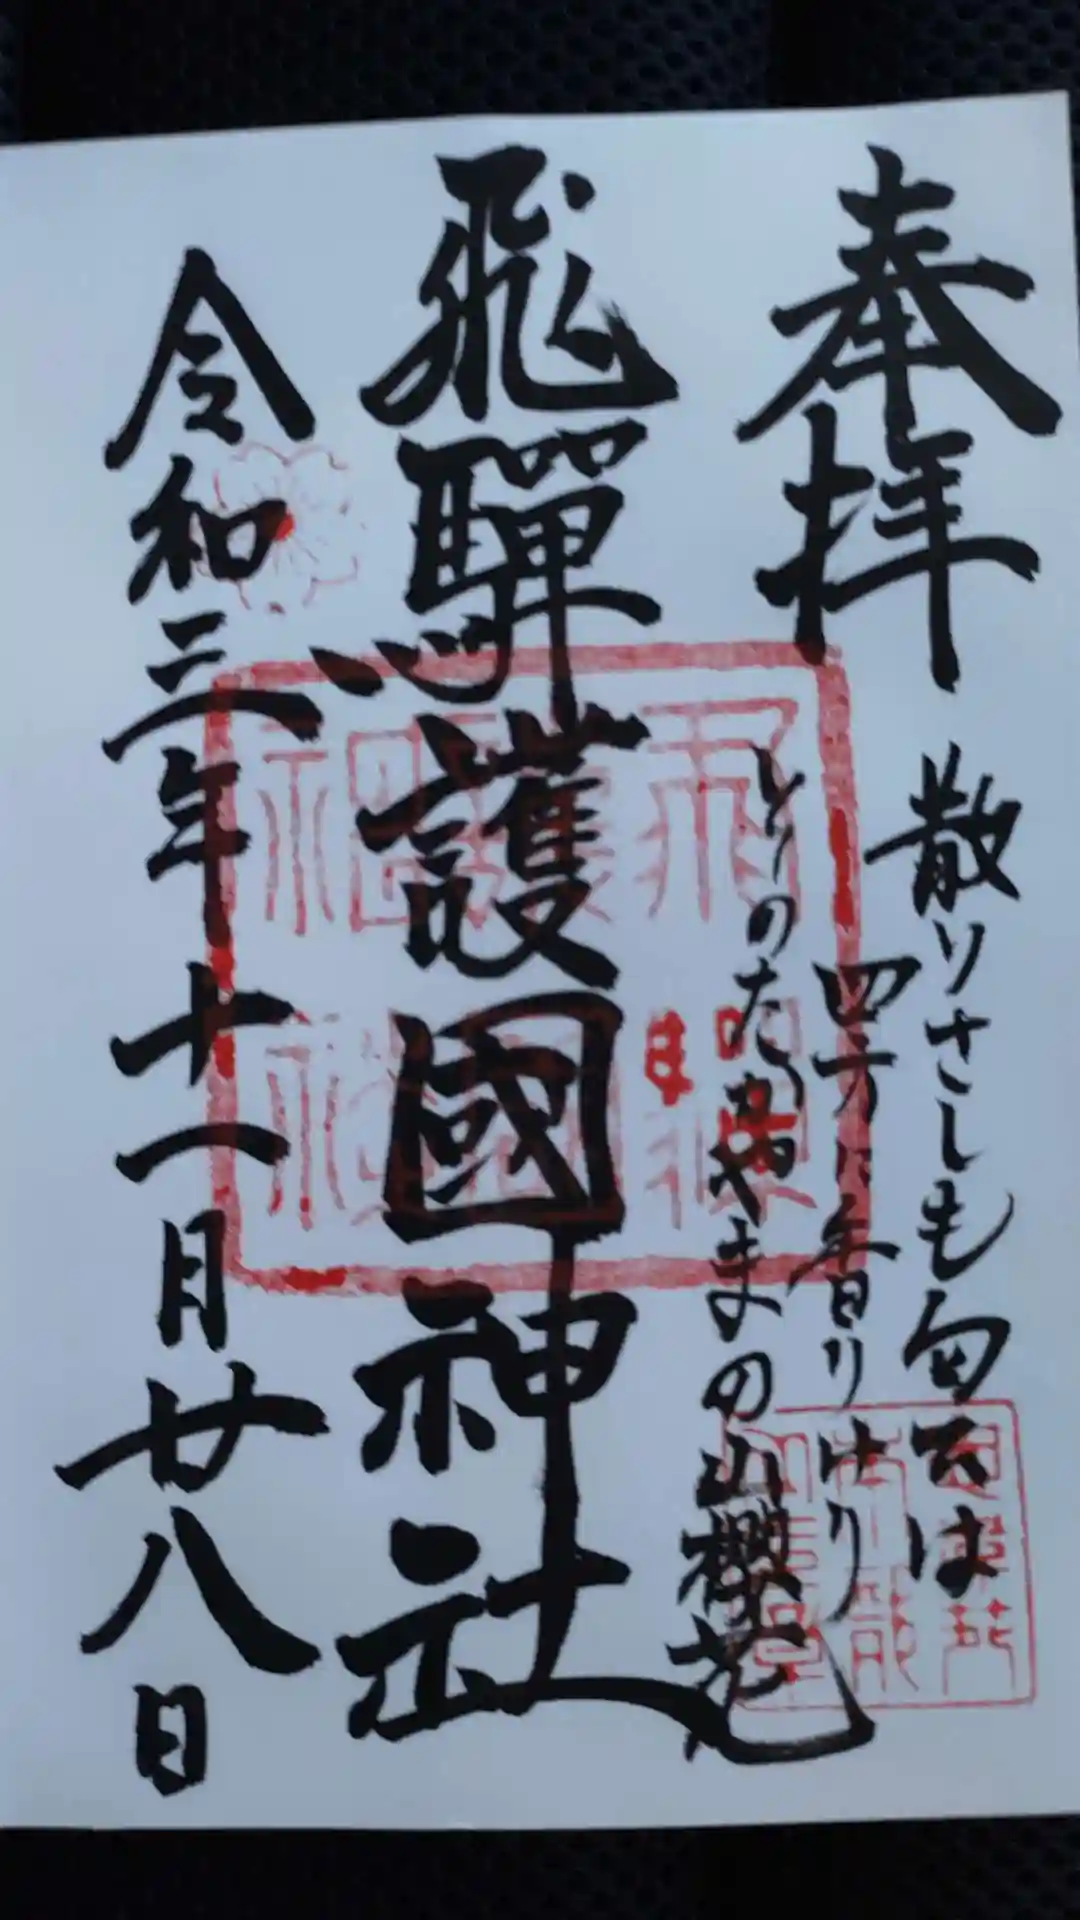 奉拝
散りさしも匂云は
四方に香りけり
とりのたかやまの山櫻花
飛騨護國神社
令和三年十一月廿八日